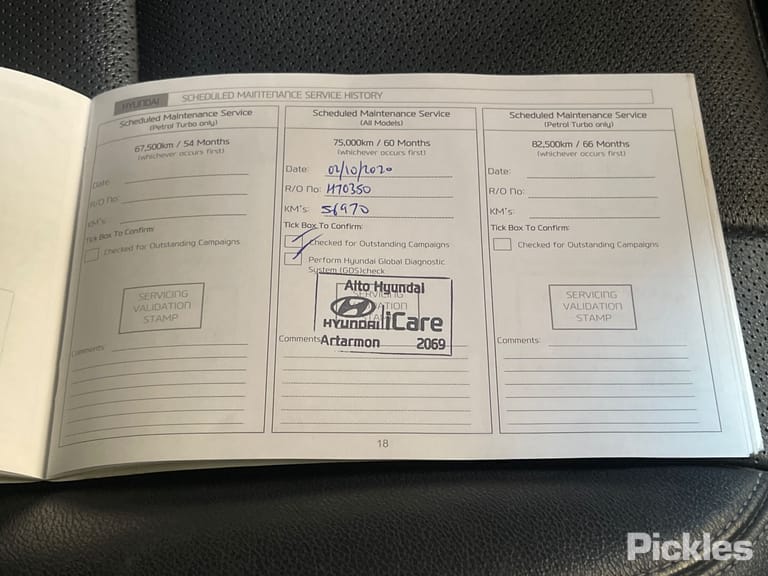 HYUNDAI SCHEDULED MAINTENANCE SERVICE HISTORY
Scheduled Maintenance Service
(Petrol Turbo only)
67,500km / 54 Months
(whichever occurs first)
Date:
R/O No:
KM's:
Tick Box To Confirm:
Checked for Outstanding Campaigns
SERVICING
VALIDATION
STAMP
Comments:
Scheduled Maintenance Service
(All Models)
75,000km / 60 Months
(whichever occurs first)
Date: 02/10/2020
R/O No: H70350
KM's: 56970
Tick Box To Confirm:
Checked for Outstanding Campaigns
Perform Hyundai Global Diagnostic
System (GDS)check
Alto Hyundai
HYUNDAI iCare
Artarmon 2069
Comments
Scheduled Maintenance Service
(Petrol Turbo only)
82,500km / 66 Months
(whichever occurs first)
Date:
R/O No:
KM's:
Tick Box To Confirm:
Checked for Outstanding Campaigns
SERVICING
VALIDATION
STAMP
Comments:
18
Pickles